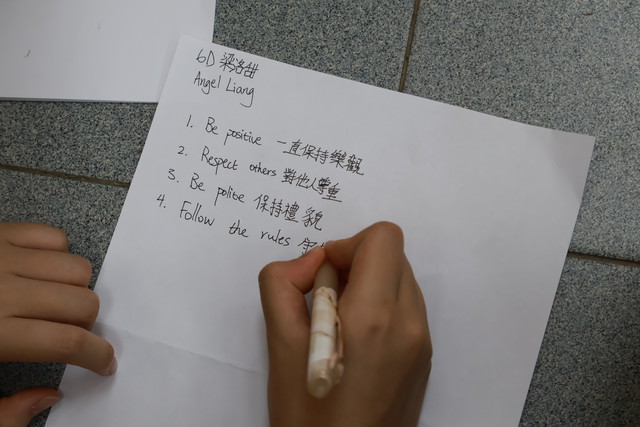 6D 梁洛甜
Angel Liang
1. Be positive 一直保持樂觀
2. Respect others 對他人尊重
3. Be polite 保持禮貌
4. Follow the rules